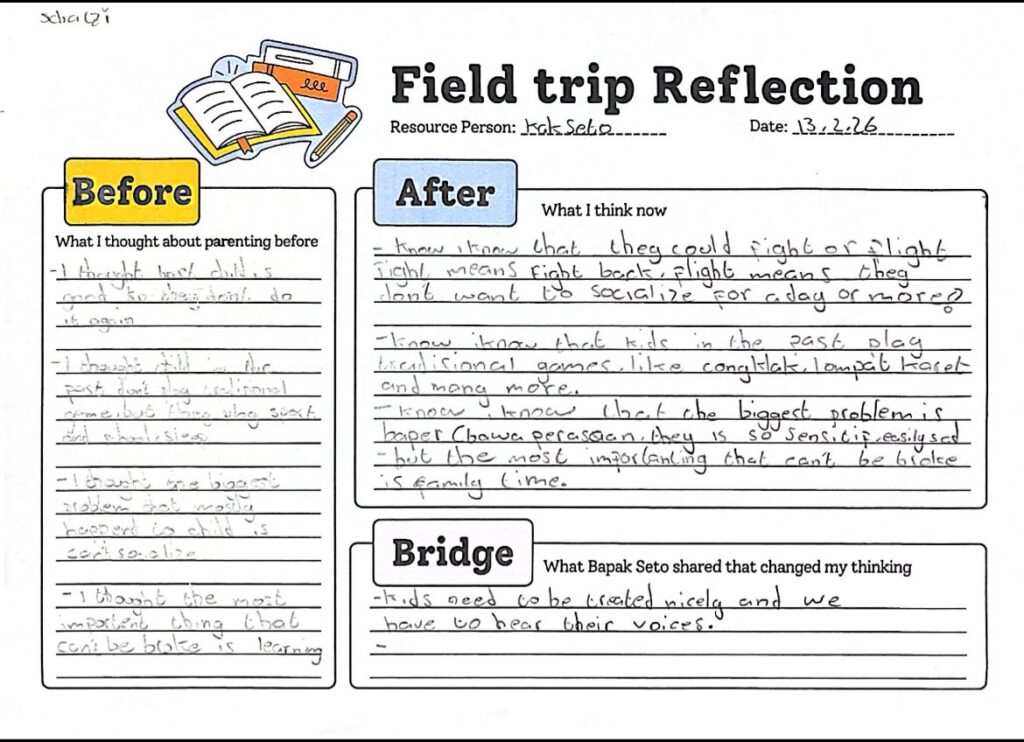 Field trip Reflection
Resource Person: Kak Seto
Date: 13.2.26
Before
What I thought about parenting before
-I thought hast child is
good so they dont do
it again
-I thought child in the
past don't play traditional
game. but they play sport
and school, sleep
-I thought the biggest
problem that mostly
happend to child is
can't socialize
-I thought the most
important thing that
can't be broke is learning
After
What I think now
- know i know that they could fight or flight
fight means Fight back. flight means they
don't want to socialize for a day or more?
-know iknow that kids in the past play
traditional games. like congklak, lompat karet
and many more.
-know i know that the biggest problem is
baper (bawa perasaan. they is so sensitif, easily sad
-but the most importanting that can't be broke
is family time.
Bridge
What Bapak Seto shared that changed my thinking
-kids need to be treated nicely and we
have to hear their voices.
-